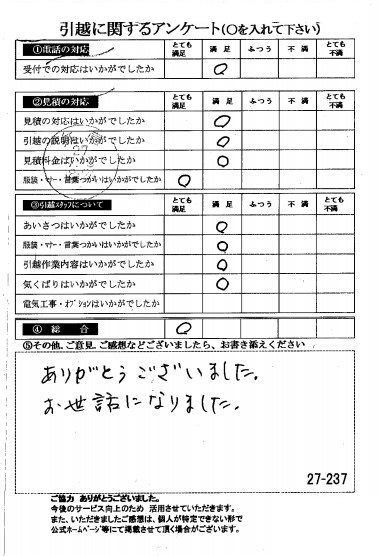 引越に関するアンケート(○を入れて下さい)
①電話の対応 とても満足 満足 ふつう 不満 とても不満
受付での対応はいかがでしたか ○
②見積の対応 とても満足 満足 ふつう 不満 とても不満
見積の対応はいかがでしたか ○
引越の説明はいかがでしたか ○
見積料金はいかがでしたか ○
服装・マナー・言葉つかいはいかがでしたか ○
③引越スタッフについて とても満足 満足 ふつう 不満 とても不満
あいさつはいかがでしたか ○
服装・マナー・言葉つかいはいかがでしたか ○
引越作業内容はいかがでしたか ○
気くばりはいかがでしたか ○
電気工事・オプションはいかがでしたか
④総合 ○
⑤その他、ご意見、ご感想などございましたら、お書き添えください
ありがとうございました。
お世話になりました。
27-237
ご協力 ありがとうございました。
今後のサービス向上のため 活用させていただきます。
また、いただきましたご感想は、個人が特定できない形で
公式ホームページ等にて掲載させて頂く場合がございます。